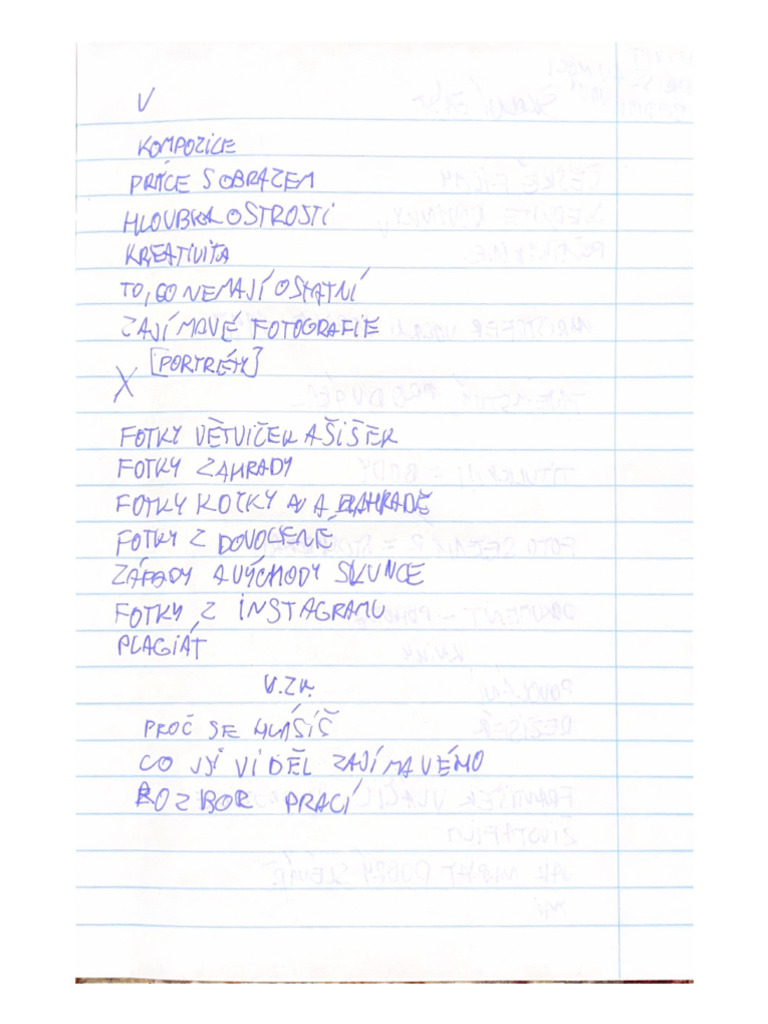 V
KOMPOZICE
PRÁCE S OBRAZEM
HLOUBKA OSTROSTI
KREATIVITA
TO, CO NEMAJÍ OSTATNÍ
ZAJÍMAVÉ FOTOGRAFIE
[PORTRÉTY]
X
FOTKY VĚTVIČEK A ŠIŠEK
FOTKY ZAHRADY
FOTKY KOČKY NA ZAHRADĚ
FOTKY Z DOVOLENÉ
ZÁPADY A VÝCHODY SLUNCE
FOTKY Z INSTAGRAMU
PLAGIÁT
U.ZK.
PROČ SE HLÁSÍŠ
CO JSI VIDĚL ZAJÍMAVÉHO
ROZBOR PRACÍ